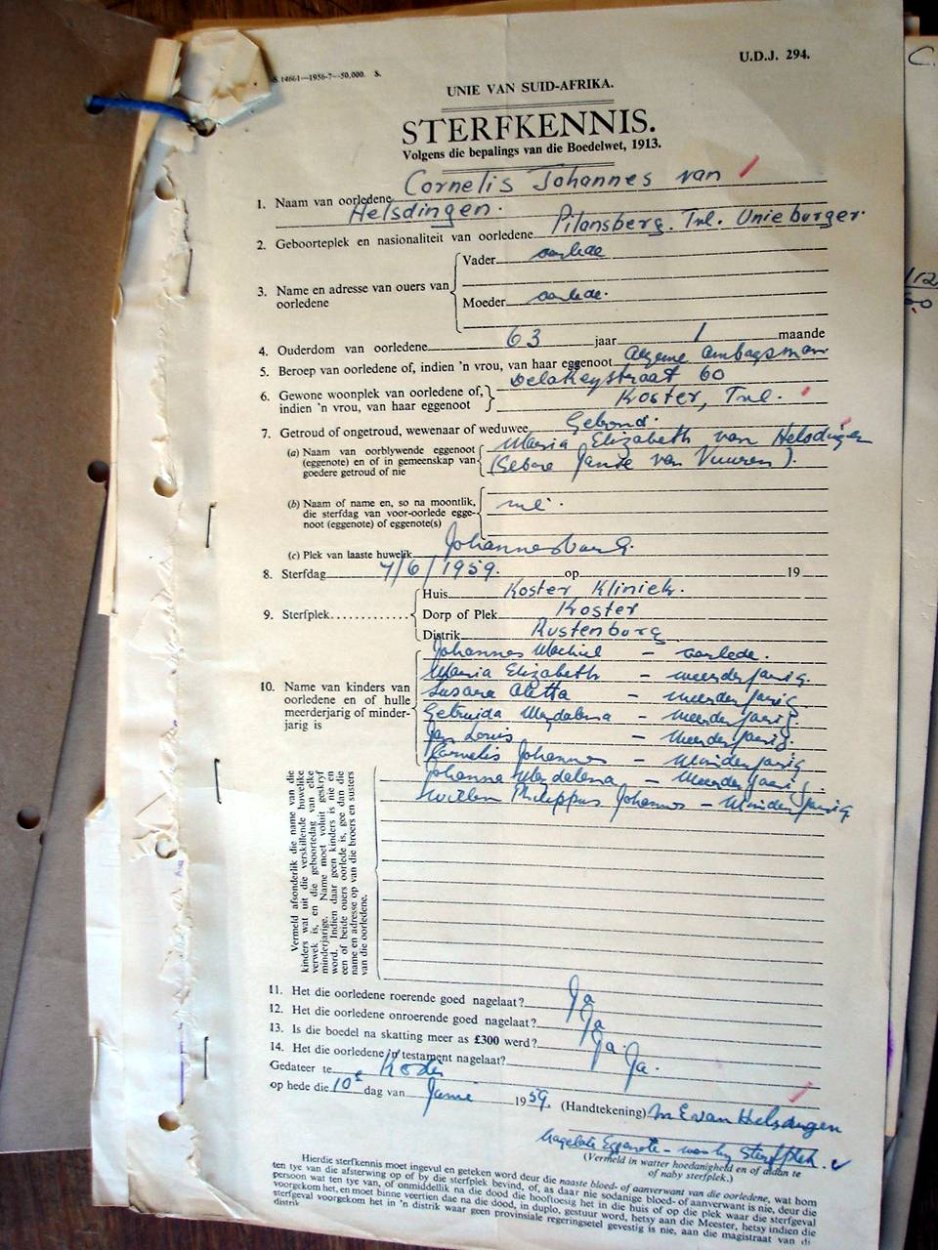 S. 14661—1956-7—50,000. S.
U.D.J. 294.
UNIE VAN SUID-AFRIKA.
STERFKENNIS.
Volgens die bepalings van die Boedelwet, 1913.
1. Naam van oorledene Cornelis Johannes van
Helsdingen.
2. Geboorteplek en nasionaliteit van oorledene Pilansberg. Tvl. Unieburger.
3. Name en adresse van ouers van oorledene
Vader oorlede
Moeder oorlede.
4. Ouderdom van oorledene 63 jaar 1 maande
5. Beroep van oorledene of, indien 'n vrou, van haar eggenoot Algemene ambagsman
6. Gewone woonplek van oorledene of, indien 'n vrou, van haar eggenoot
Delareystraat 60
Koster, Tvl.
7. Getroud of ongetroud, wewenaar of weduwee Getroud.
(a) Naam van oorblywende eggenoot
(eggenote) en of in gemeenskap van
goedere getroud of nie
Maria Elizabeth van Helsdingen
(Gebore Janse van Vuuren).
(b) Naam of name en, so na moontlik,
die sterfdag van voor-oorlede egge-
noot (eggenote) of eggenote(s)
nie.
(c) Plek van laaste huwelik Johannesburg.
8. Sterfdag 7/6/1959. op 19
9. Sterfplek
Huis Koster Kliniek.
Dorp of Plek Koster
Distrik Rustenburg
10. Name van kinders van
oorledene en of hulle
meerderjarig of minder-
jarig is
Johannes Machiel — oorlede.
Maria Elizabeth — meerderjarig
Susara Aletta — meerderjarig
Getruida Magdalena — meerderjarig.
Jan Louis — meerderjarig.
Cornelis Johannes — minderjarig
Johanna Magdalena — meerderjarig.
Willem Philippus Johannes — minderjarig
Vermeld afsonderlik die name van die
kinders wat uit die verskillende huwelike
verwek is, en die geboortedag van elke
minderjarige. Name moet voluit geskryf
word. Indien daar geen kinders is nie en
een of beide ouers oorlede is, gee dan die
name en adresse op van die broers en susters
van die oorledene.
11. Het die oorledene roerende goed nagelaat? Ja
12. Het die oorledene onroerende goed nagelaat? Ja
13. Is die boedel na skatting meer as £300 werd? Ja.
14. Het die oorledene 'n testament nagelaat? Ja.
Gedateer te Koster
op hede die 10e dag van Junie 1959. (Handtekening) M E van Helsdingen
Nagelate Eggenote — naby sterfplek.
(Vermeld in watter hoedanigheid en of aldan te
of naby sterfplek.)
Hierdie sterfkennis moet ingevul en geteken word deur die naaste bloed- of aanverwant van die oorledene, wat hom
ten tye van die afsterwing op of by die sterfplek bevind, of, as daar nie sodanige bloed- of aanverwant is nie, deur die
persoon wat ten tye van, of onmiddellik na die dood die hooftoesig het in die huis of op die plek waar die sterfgeval
voorgekom het, en moet binne veertien dae na die dood, in duplo, gestuur word, hetsy aan die Meester, hetsy indien die
sterfgeval voorgekom het in 'n distrik waar geen provinsiale regeringsetel gevestig is nie, aan die magistraat van di
distrik